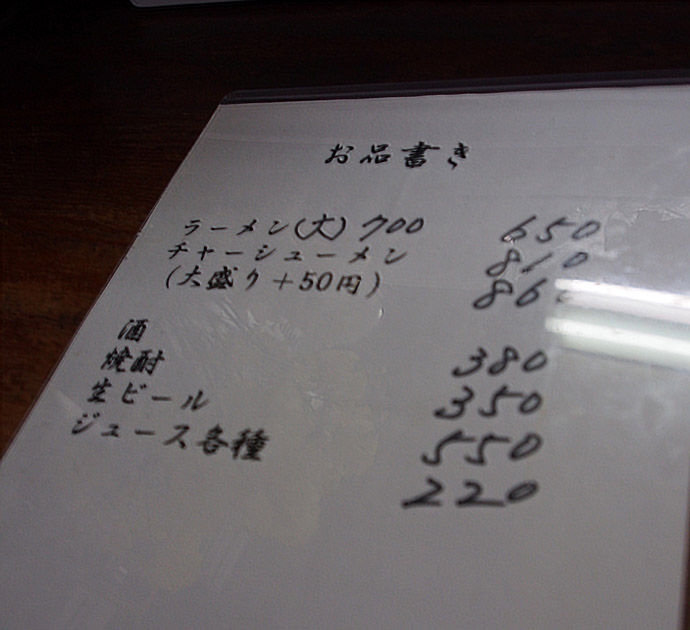 お品書き
ラーメン(大)700 650
チャーシューメン 810
(大盛り+50円) 860
酒 380
焼酎 350
生ビール 550
ジュース各種 220